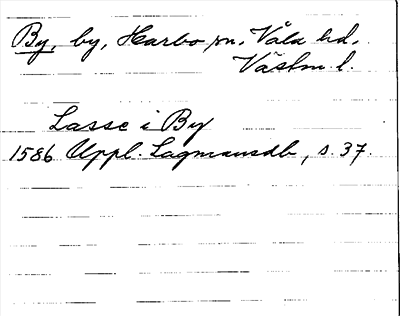 By, by, Harbo sn, Våla hd,
Västm. l.
Lasse i By
1586 Uppl. Lagmansdb, s. 37.